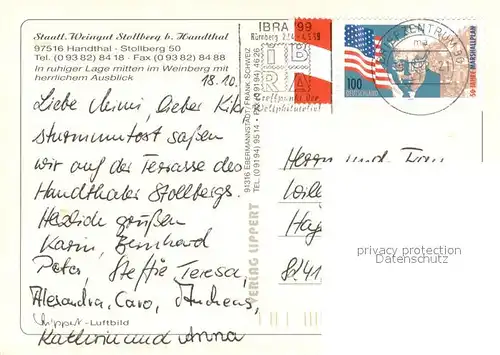 Staatl. Weingut Stollberg b. Handthal
97516 Handthal - Stollberg 50
Tel. (0 93 82) 84 18 - Fax (0 93 82) 84 88
In ruhiger Lage mitten im Weinberg mit
herrlichem Ausblick
18.10.
Liebe Mimi, lieber Kiki
saßen
wir auf der Terrasse des
Handthaler Stollbergs.
Herzlich grüßen
Karin, Bernhard
Peter, Steffie Teresa,
Alexandra, Caro,
Kathrin und Anna
Lippert-Luftbild
VERLAG LIPPERT
91316 EBERMANNSTADT/FRANK.SCHWEIZ
TEL. (0 91 94) 95 14 - FAX (0 91 94) 46 26
IBRA '99
Nürnberg 27.4.-4.5.99
IB
RA
Treffpunkt der
Weltphilatelie!
BRIEFZENTRUM 90
100
DEUTSCHLAND
50 JAHRE MARSHALLPLAN
Herrn und Frau
privacy protection
www.ansichtskartenversand.com